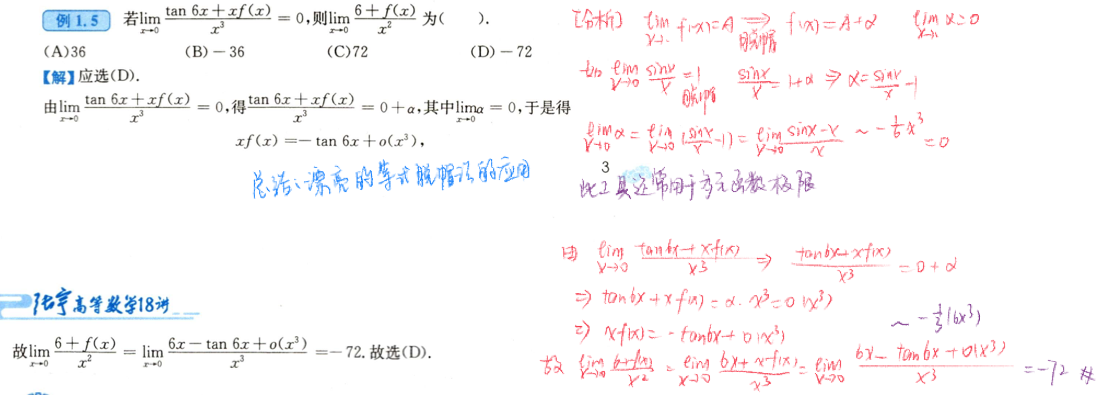 例 1.5 若lim_{x→0} (tan 6x + xf(x))/x³ = 0,则lim_{x→0} (6+f(x))/x² 为( ).
(A)36 (B)-36 (C)72 (D)-72
【解】应选(D).
由lim_{x→0} (tan 6x + xf(x))/x³ = 0,得(tan 6x + xf(x))/x³ = 0+α,其中lim_{x→0} α = 0,于是得
xf(x) = -tan 6x + o(x³),
总结、漂亮的等式脱帽法的应用
3
张宇高等数学18讲
故lim_{x→0} (6+f(x))/x² = lim_{x→0} (6x - tan 6x + o(x³))/x³ = -72. 故选(D).
[分析] lim_{x→·} f(x)=A ⇒ f(x)=A+α lim_{x→·} α=0
脱帽
lim_{x→0} sinx/x = 1 sinx/x = 1+α ⇒ α = sinx/x - 1
脱帽
lim_{x→0} α = lim_{x→0} (sinx/x - 1) = lim_{x→0} (sinx-x)/x ~ -1/6 x³ = 0
此工具还常用于多元函数极限
由 lim_{x→0} (tan6x + xf(x))/x³ ⇒ (tan6x + xf(x))/x³ = 0+α
⇒ tan6x + xf(x) = α·x³ = o(x³)
⇒ xf(x) = -tan6x + o(x³)
~ -1/3(6x³)
故 lim_{x→0} (6+f(x))/x² = lim_{x→0} (6x + xf(x))/x³ = lim_{x→0} (6x - tan6x + o(x³))/x³ = -72 #